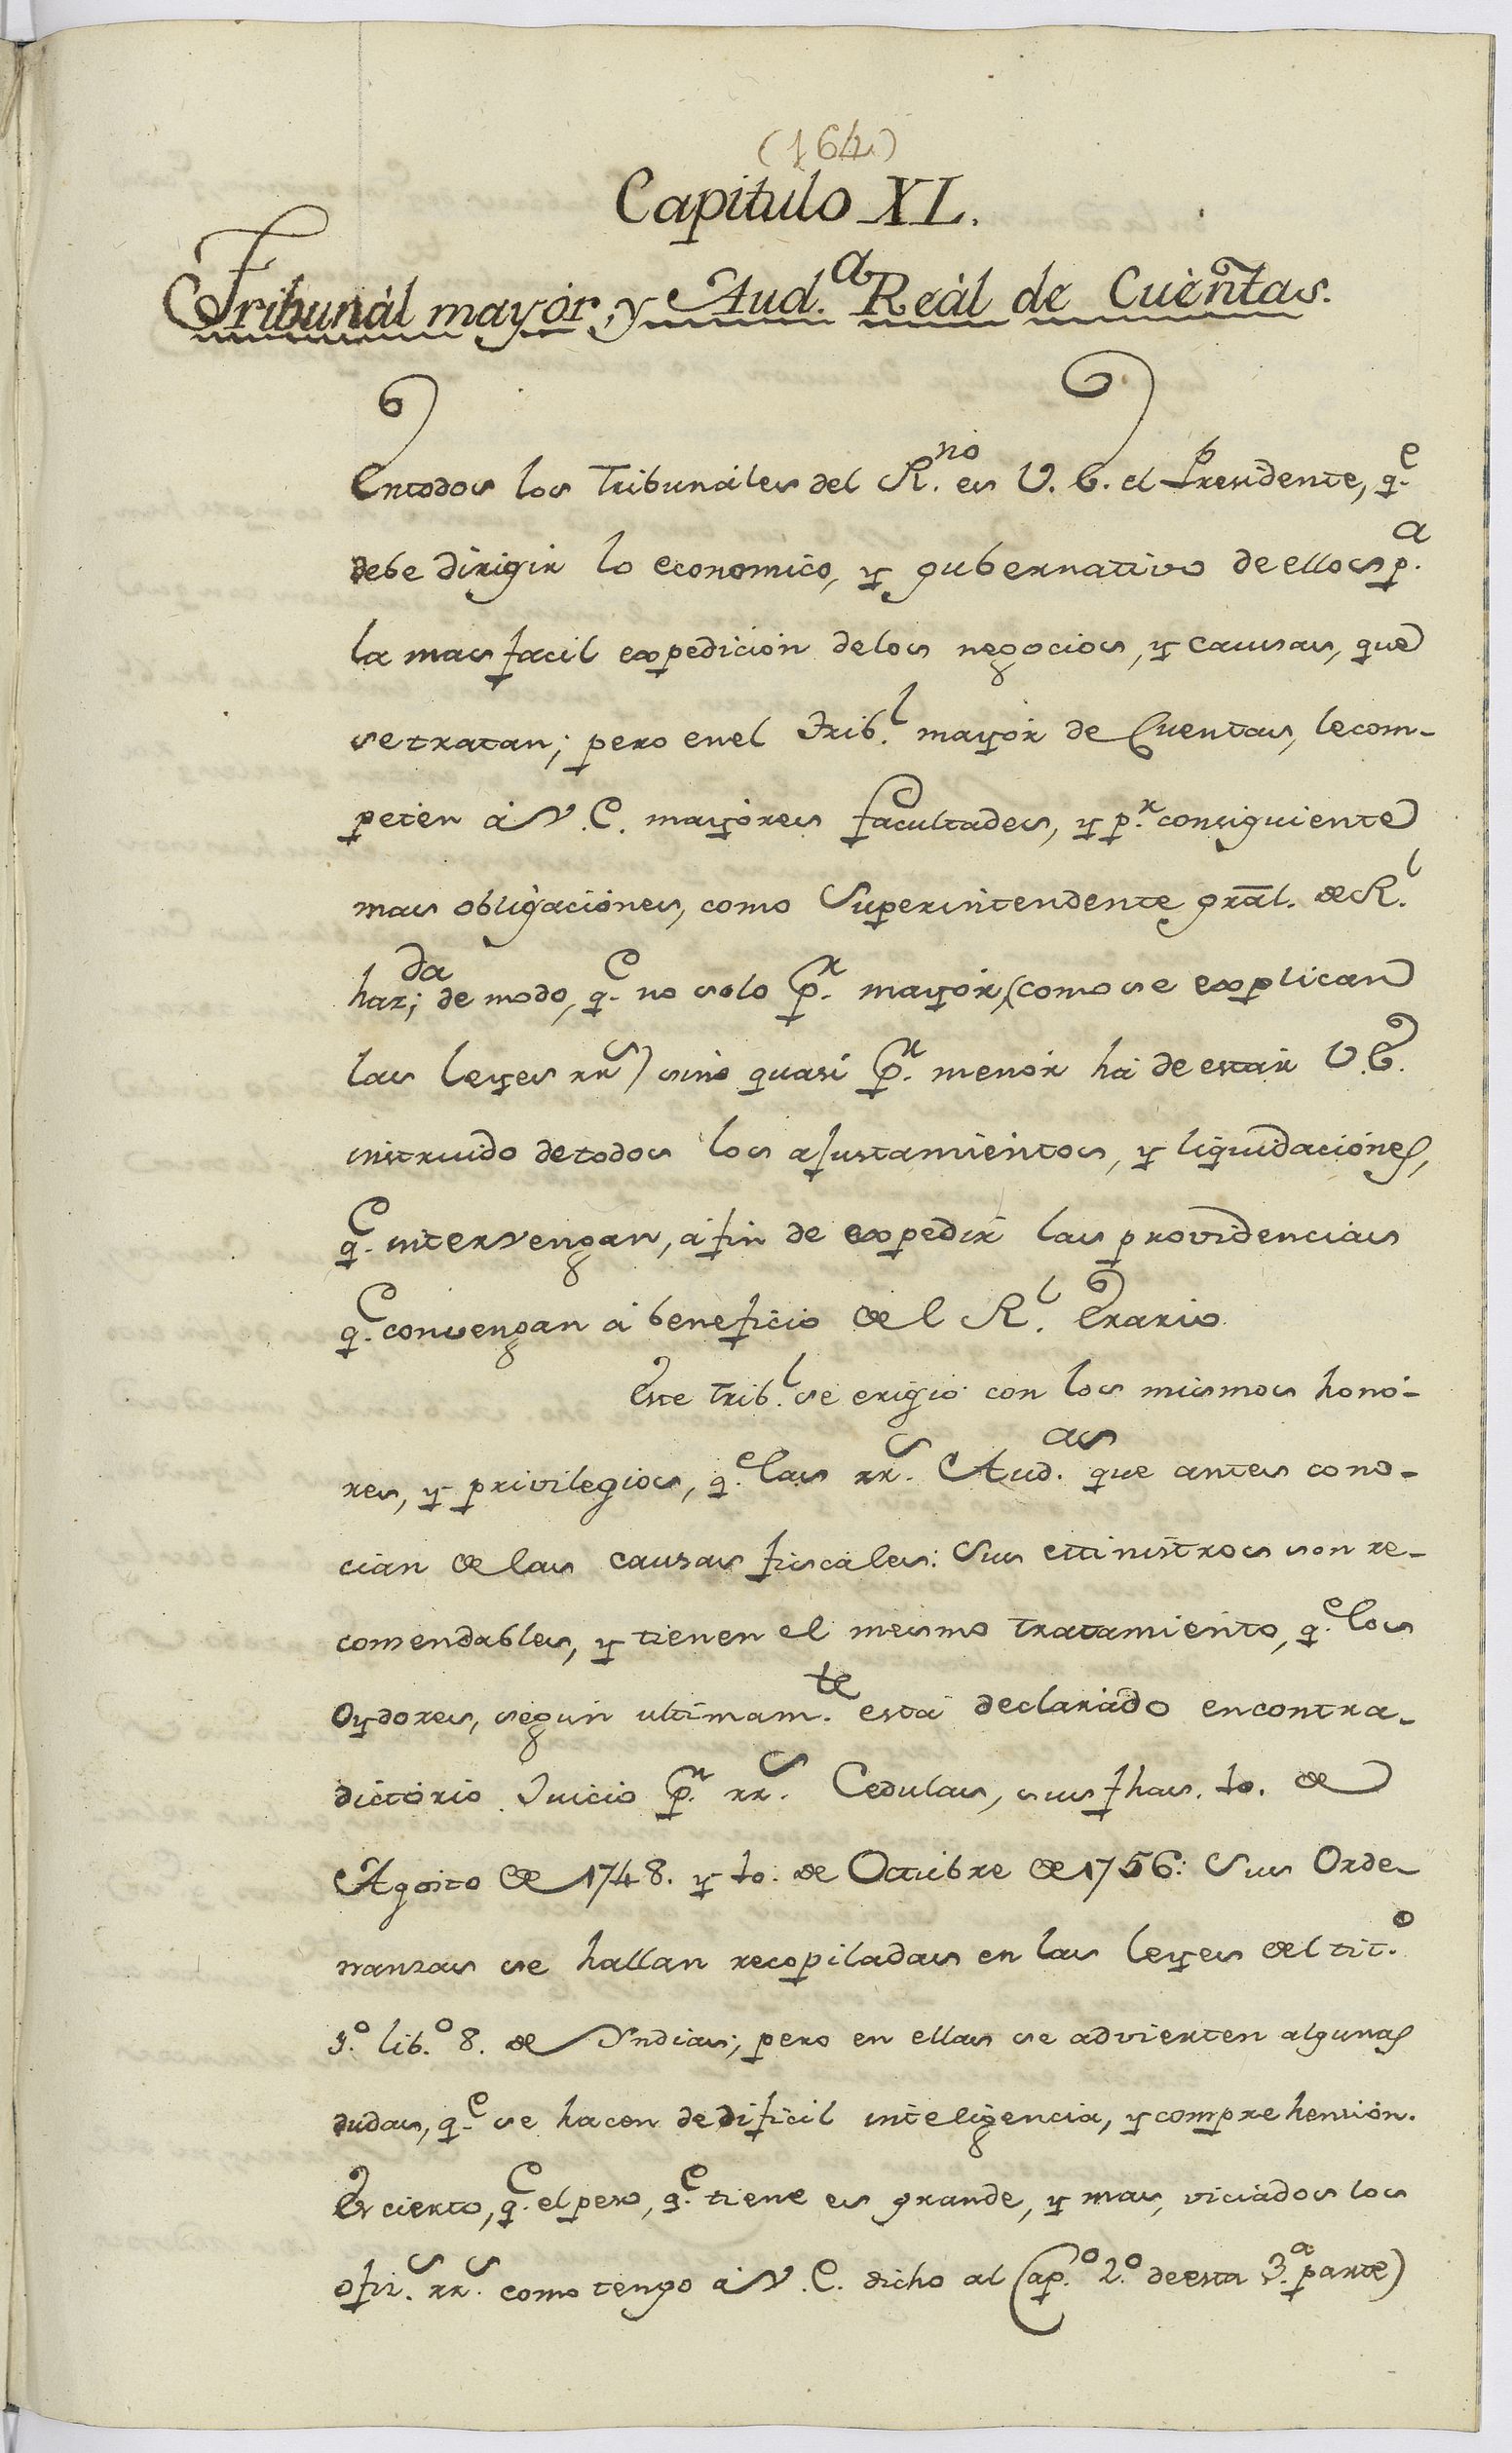 (164)
Capitulo XL.
Tribunál mayór, y Aud.ª Reál de Cuentas.
En todos los Tribunáles del R.no es V. E. el Presidente, q.e
debe dirigir lo economico, y gubernativo de ellos p.a
la mas facil expedicion delos negocios, y causas, que
se tratan; pero enel Trib.l mayór de Cuentas, le com-
petén á V. E. mayóres facultades, y p.r consiguiente
mas obligaciónes, como Superintendente grāl. de R.l
haz.da; de modo, q.e no solo p.r mayór, (como se explican
las leyes rr.s) sino quasi p.r menór há de estár V. E.
instruido de todos los ajustamientos, y liquidaciónes,
q.e intervengan, á fin de expedir las providencias
q.e convengan á beneficio de l R.l Erario
Este Trib.l se erigió con los mismos honó-
res, y privilegios, q.e las rr.s Aud.as que antes cono-
cian de las causas fiscáles: Sus Ministros son re-
comendables, y tienen el mesmo tratamiento, q.e los
Oydores, segun ultimam.te está declarádo encontra-
dictório Juicio p.r rr.s Cedulas, sus fhas. 10. de
Agosto de 1748. y 10. de Octubre de 1756: Sus Orde-
nanzas se hallan recopiladas en las leyes del tit.o
3.o lib.o 8. de Yndias; pero en ellas se advierten algunas
dudas, q.e se hacen de dificil inteligencia, y comprehensión.
Es cierto, q.e el peso, q.e tiene es grande, y mas, viciádos los
ofiz.s rr.s como tengo á V. E. dicho al (Cap.o 2.o de esta 3.a parte)